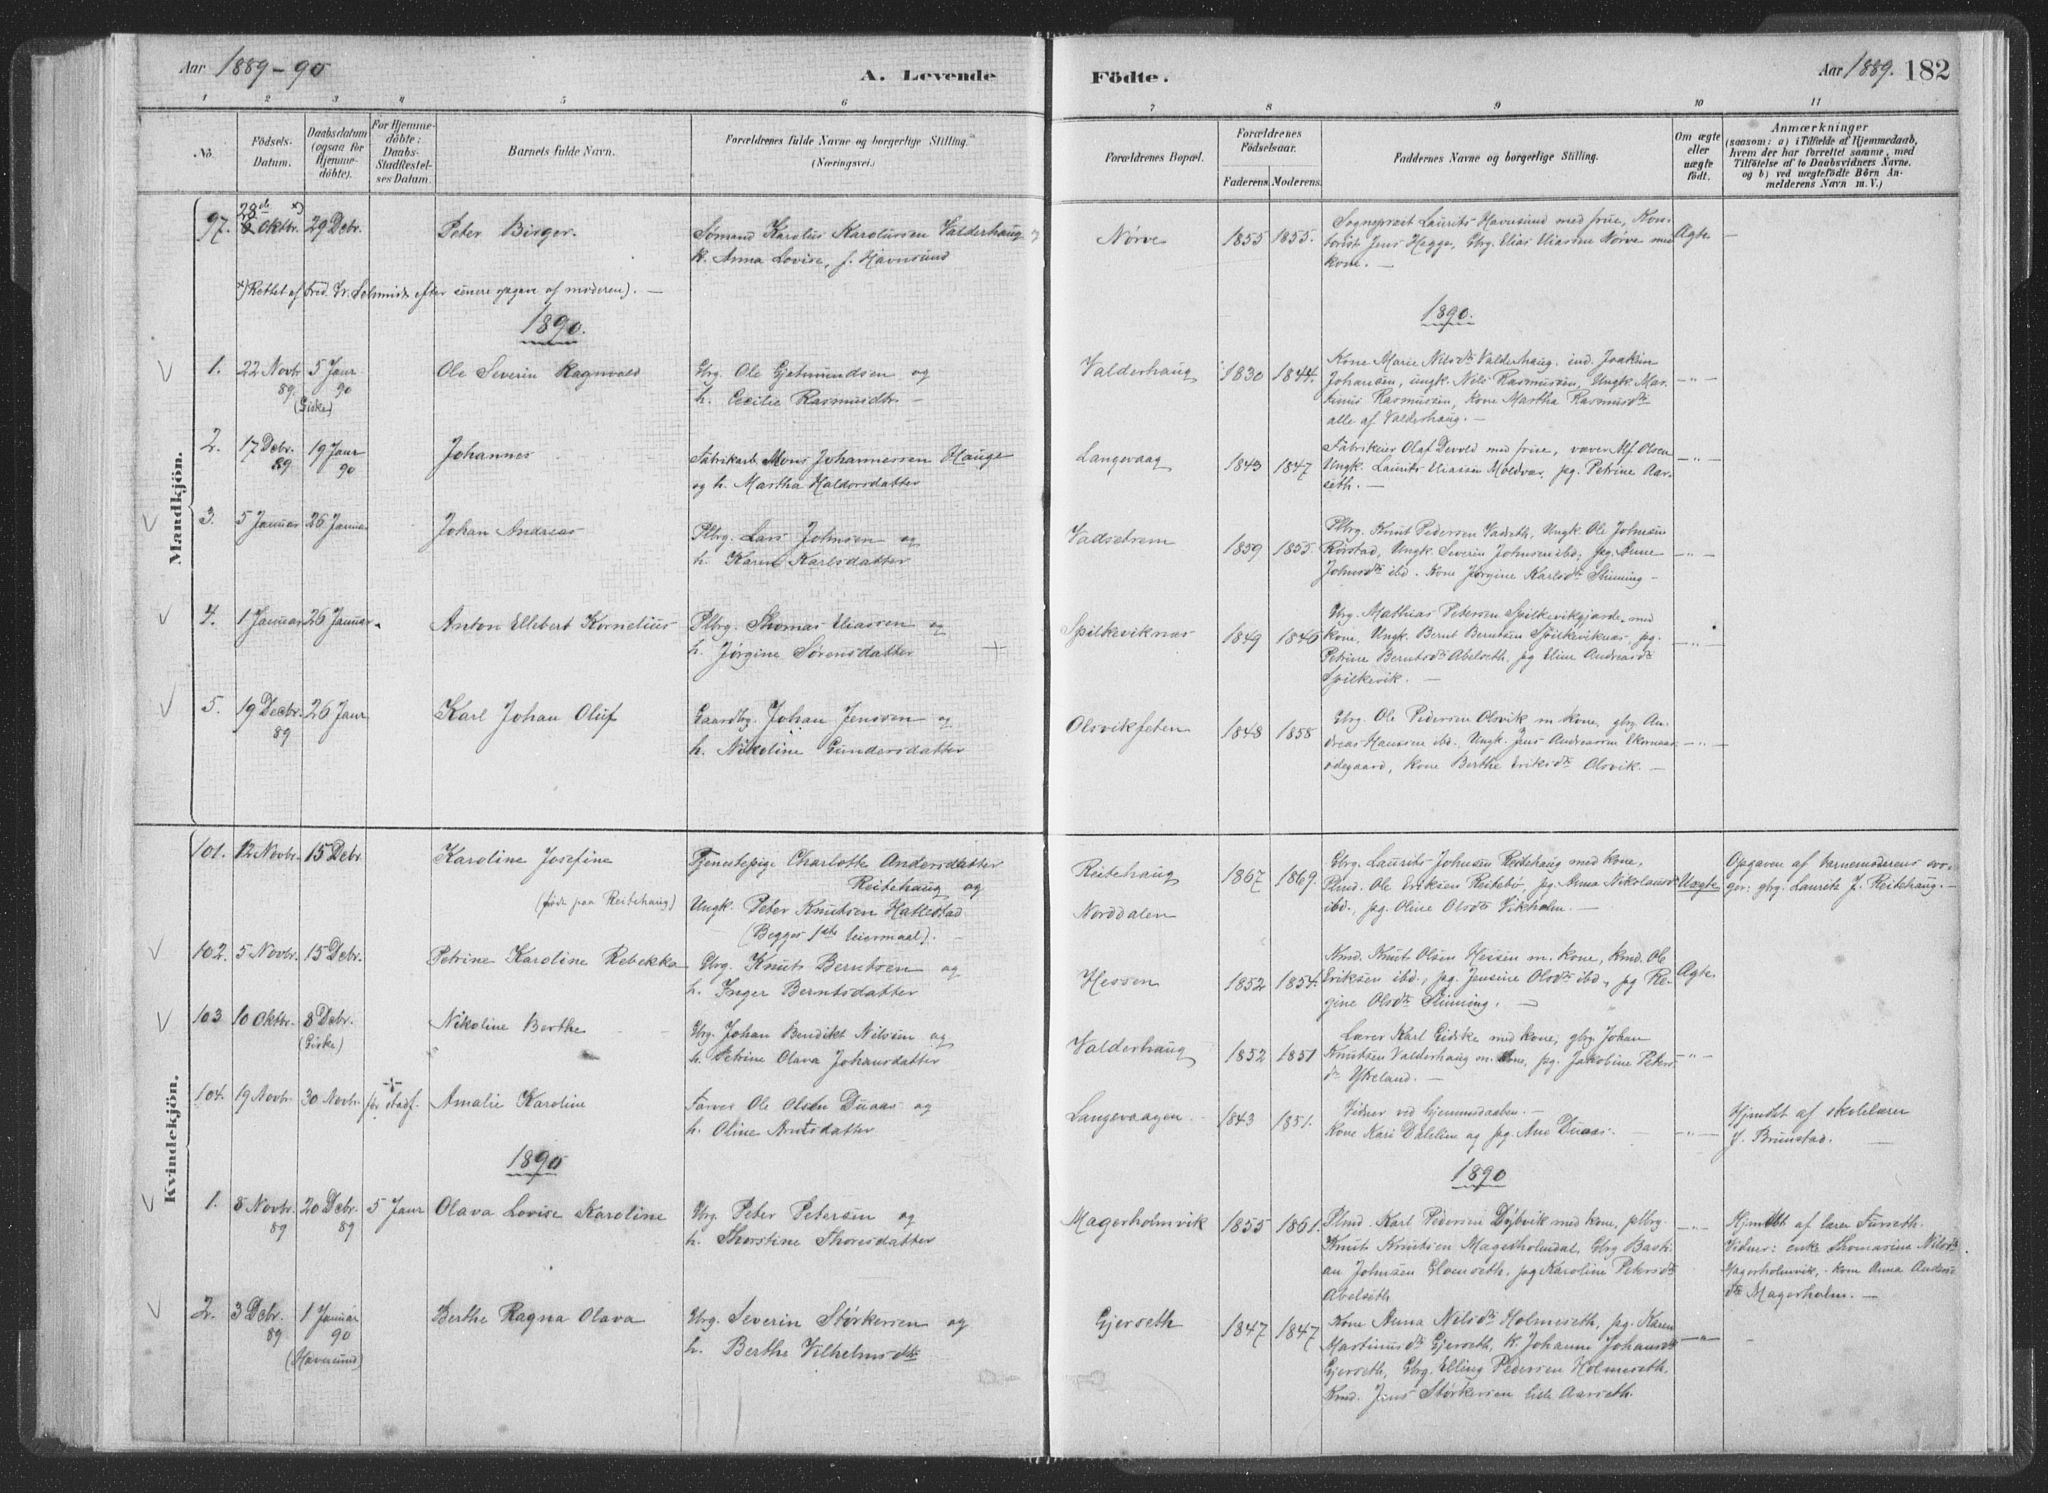 Aar 1889-90
A. Levende
Födte.
Aar 1889. 182
1 2 3 4 5 6 7 8 9 10 11
No.
Födsels-
Datum.
Daabsdatum
(ogsaa for
Hjemme-
döbte).
For Hjemme-
döbte:
Daabs-
Stadfæstel-
ses Datum.
Barnets fulde Navn.
Forældrenes fulde Navne og borgerlige Stilling.
(Næringsvei.)
Forældrenes Bopæl.
Forældrenes
Födselsaar.
Faderens. Moderens.
Faddernes Navne og borgerlige Stilling.
Om ægte
eller
uægte
födt.
Anmærkninger
(saasom: a) i Tilfælde af Hjemmedaab,
hvem der har forrettet samme, med
Tilföielse af to Daabsvidners Navne.
og b) ved uægtefödte Börn An-
melderens Navn m. V.)
Mandkjön.
97. 28de *) 6 Oktbr. 29 Debr. Peter Birger.
Sømand Karolus Karolussen Valderhaug og
h. Anna Lovise, f. Havnsund
Nørve 1855 1855.
Sogneprest Laurits Havnsund med frue, Kon-
torist Jens Hagge, Gbg. Elias Eliassen Nørve med
kone. —
Ægte —
*) Rettet af Fred. Kr. Schmidt efter senere opgave af moderen). —
1890.
1890.
1. 22 Novbr 89. 5 Janr 90 (Giske) Ole Severin Ragnvald
Gbrg. Ole Gjetmundsen og
h. Cecilie Rasmusdtr —
Valderhaug 1830 1844.
Kone Marie Nilsdtr Valderhaug. ind. Joakim
Johansen, ungk. Nils Rasmussen, Ungk. Mar-
tinus Rasmussen, Kone Martha Rasmusdtr
alle af Valderhaug. —
—"—
2. 17 Debr. 89 19 Janr 90 Johannes
Fabrikarb. Mons Johannessen Hauge
og h. Martha Haldorsdatter
Langevaag 1843 1847
Fabrikeier Olaf Devold med frue, væver Alf Olsen
Ungk. Laurits Eliassen Moldvær, pg. Petrine Aar-
seth. —
—"—
3. 5 Januar 26 Januar Johan Andreas
Plbrg. Lars Johnsen og
h. Karen Karlsdatter
Vadsetrem 1859 1855.
Plbrg. Knut Pedersen Vadseth, Ungk. Ole Johnsen
Rørstad, Ungk. Severin Johnsen ibd; pg. Anne
Johnsdtr ibd. Kone Jørgine Karlsdtr Slinning —
—"—
4. 1 Januar 26 Januar. Anton Ellebert Kornelius
Plbrg. Thomas Eliassen og
h. Jørgine Sørensdatter
Spilkeviknæs 1849 1846
Gbrg. Mathias Petersen Spilkevikgjærde med
kone, Ungk. Bernt Berntsen Spilkeviknæs, pg.
Petrine Berntsdtr Abelseth, pg Eline Andreasdtr
Spilkevik. —
—"—
5. 19 Decbr. 89 26 Janr Karl Johan Oluf
Gaardbrg. Johan Jenssen og
h. Nikoline Gundersdatter
Olsvikfeten 1848 1858
Gbrg. Ole Pedersen Olsvik m. kone, gbrg. An-
dreas Hanssen ibd., Ungk. Jens Andreassen Ekornæs
ødegaard, kone Berthe Eriksdtr Olsvik. —
—"—
Kvindekjön.
101. 12 Novbr. 15 Debr. Karoline Josefine
(født paa Reitehaug)
Tjenestepige Charlotte Andersdatter
Reitehaug og
Ungk. Peter Knutsen Hattestad
(Begges 1ste leiermaal). —
Reitehaug
Norddalen
1867 1869.
Gbrg. Laurits Johnsen Reitehaug med kone,
Plmd. Ole Eriksen Reitebø, pg. Anna Nikolausdtr
ibd., pg. Oline Olsdtr Vikholm. —
Uægte
Opgaven af barnemoderens svo-
ger: gbrg. Laurits J. Reitehaug. —
102. 5 Novbr. 15 Debr. Petrine Karoline Rebekka
Gbrg. Knut Berntsen og
h. Inger Berntsdatter
Hessen 1852 1854.
Kmd. Knut Olsen Hessen m. kone, Kmd. Ole
Eriksen ibd., pg. Jensine Olsdtr ibd., pg Re-
gine Olsdtr Slinning. —
Ægte
103 10 Oktbr. 8 Debr. (Giske) Nikoline Berthe
Gbrg. Johan Bendikt Nilsen og
h. Petrine Olava Johansdatter
Valderhaug 1852 1851
Lærer Karl Gidske med kone, gbrg. Johan
Knutsen Valderhaug m. kone, pg. Jakobine Peters-
dtr Ytreland. —
—"—
104. 19 Novbr. 30 Novbr. før stadf. Amalie Karoline
Farver Ole Olsen Duaas og
h. Oline Arntsdatter
Langevaagen 1843 1851.
Vidner ved hjemmedaaben. —
Kone Kari Daleline og pg. Ane Duaas. —
—"—
Hjmdbt af skolelærer
J. Brunstad. —
1890
1890
1. 8 Novbr. 89 20 Debr. 89 5 Janr Olava Lovise Karoline
Gbrg. Peter Petersen og
h. Thorstine Thoresdatter
Magerholmvik 1855 1861.
Plmd. Karl Pedersen Dybvik med kone, plbrg.
Knut Knutsen Magerholmdal, Gbrg Basti-
an Johnsen Elvenseth, pg Karoline Petersdtr
Abelseth.
—"—
Hjmdbt af lærer Furseth.
Vidner: enke Thomasine Nilsdtr
Magerholmvik, kone Anna Anders-
dtr Magerholm. —
2. 3 Debr. 89 1 Januar 90 (Havnsund) Berthe Ragna Olava
Gbrg. Severin Størkersen og
h. Berthe Vilhelmsdtr
Gjerseth 1847 1847
Kone Anna Nilsdtr Holmeseth, pg. Karen
Martinusdtr Gjerseth, K. Johanne Johansdtr
Gjerseth, Gbrg. Elling Pedersen Holmeseth.
Kmd. Jens Størkersen lille Aarseth.
—"—